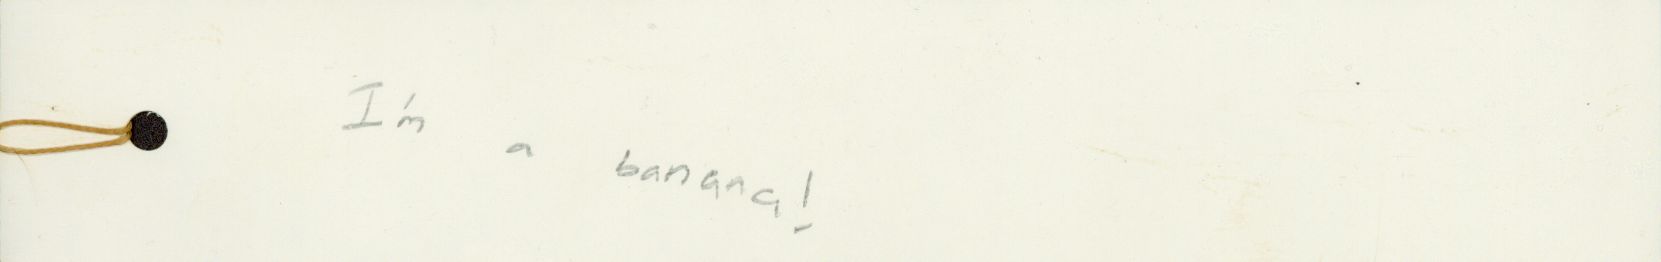 I'm a banana!